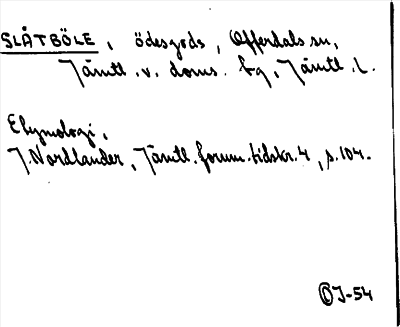 SLÅTBÖLE, ödesgods, Offerdals sn,
Jämtl. v. doms. fg, Jämtl. l.
Etymologi,
J. Nordlander, Jämtl. fornm. tidskr. 4, s. 104.
J-54